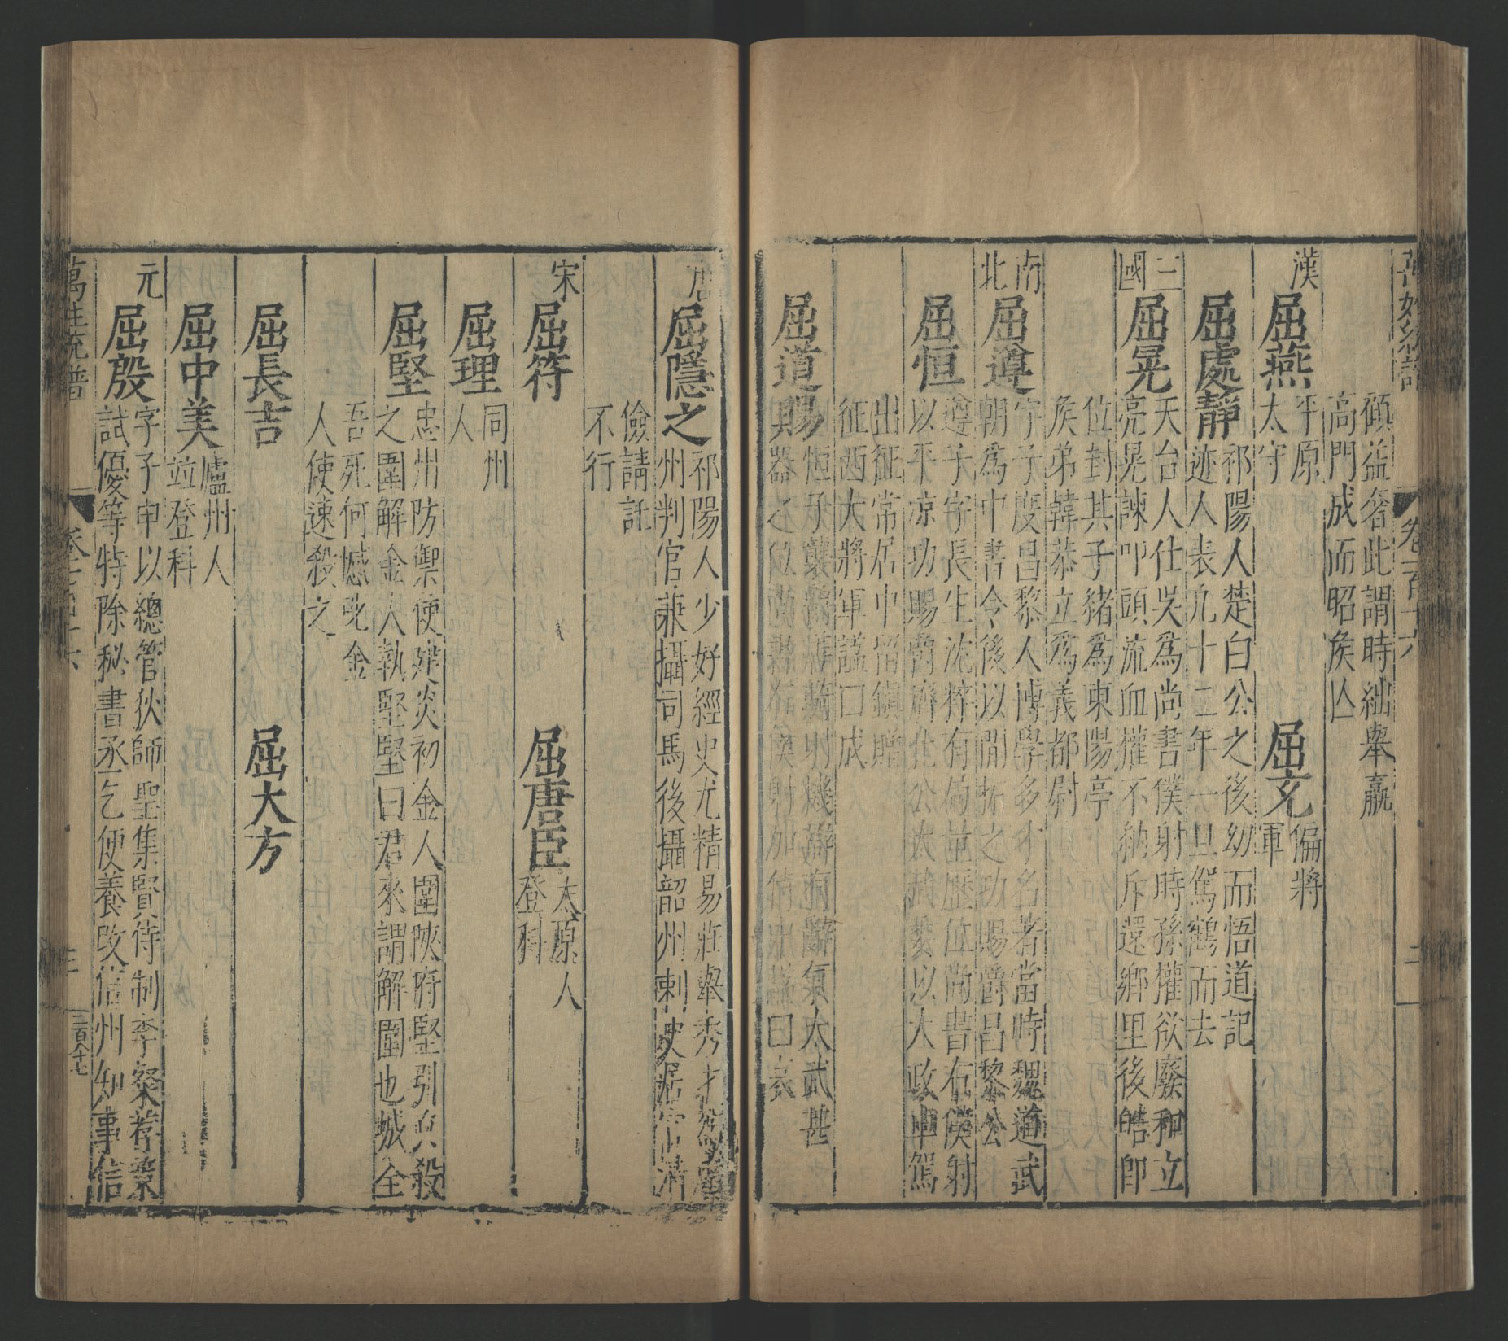 萬姓統譜 卷一百十六 二
顧益奢此謂時絀舉贏
高門成而昭侯亾
漢 屈燕 平原
太守 屈文 偏將
軍
屈處靜 祁陽人楚白公之後幼而悟道記
迹人表九十二年一旦駕鶴而去
三國 屈晃 天台人仕吳爲尚書僕射時孫權欲廢和立
亮晃諫叩頭流血權不納斥還鄉里後皓卽
位封其子緒爲東陽亭
侯弟幹恭立爲義都尉
南北 屈遵 字子度昌黎人博學多才名著當時魏道武
朝爲中書令後以開拓之功賜爵昌黎公
屈恒 遵子字長生沈粹有局量歷位尚書右僕射
以平凉功賜爵濟北公太武委以大政車駕
出征常居中留鎮贈
征西大將軍謚曰成
屈道賜 恒子襲爵善騎射機辯有辭氣太武甚
器之位尚書右僕射加侍中謚曰哀
唐 屈隱之 祁陽人少好經史尤精易莊舉秀才
州判官兼攝司馬後攝韶州刺史居官淸
儉請託
不行
宋 屈符 屈唐臣 太原人
登科
屈理 同州
人
屈堅 忠州防禦使建炎初金人圍陝府堅引兵殺
之圍解金人執堅堅曰君來謂解圍也城全
吾死何憾㫒金
人使速殺之
屈長吉 屈大方
屈中美 廬州人
竝登科
元 屈殷 字子中以總管狄師聖集賢待制李粲荐蒙
試優等特除秘書丞乞便養改信州知事信
萬姓統譜 卷一百十六 三 三百十七